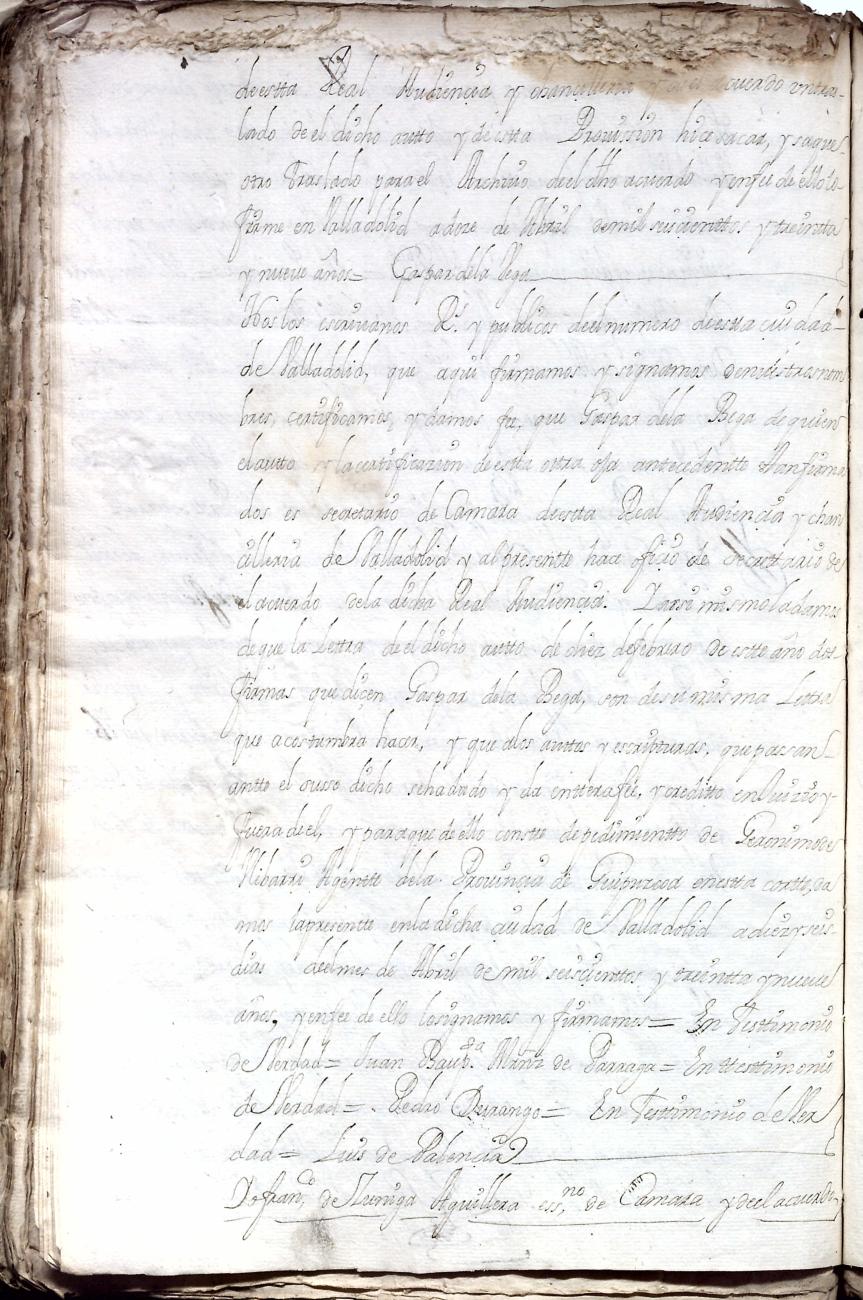 de estta Real Audiencia y chancilleria y de el acuerdo un tras-
lado de el dicho autto y de estta Prouission hice sacar, y saque
otro Traslado para el Archiuo de el dho acuerdo y en fee de ello lo
firme en Valladolid a doze de Abril de mil seiscienttos y treintta
y nueve años= Gaspar de la Vega
Nos los escriuanos Rs. y publicos de el numero de estta ciudad
de Valladolid, que aqui firmamos y signamos de nuestros nom
bres, certificamos, y damos fee, que Gaspar de la Bega de quien
el autto y la certificazion de estta ottra oja antecedentte van firma
dos es secretario de Camara de estta Real Audiencia y chan
cilleria de Valladolid y al presentte hace oficio de Secrettario de
el acuerdo de la dicha Real Audiencia. Y assi mismo la damos
de que la Lettra de el dicho autto de diez de febrero de estte año dos
firmas que dicen Gaspar de la Bega, son de su misma Lettra
que acostumbra hacer, y que a los auttos y escripturas, que pasan
antte el suso dicho se ha dado y da entterafee, y creditto en Juizio y
fuera de el, y para que de ello constte de pedimientto de Geronimo de
Ribarri Agentte de la Prouincia de Guipuzcoa en estta cortte, da
mos la presentte en la dicha ciudad de Valladolid a diez y seis
dias de el mes de Abril de mil seiscienttos y treintta y nueve
años, y en fee de ello lo signamos y firmamos= En Testtimonio
de Verdad= Juan Baupta. Mñz de Parraga= En ttesttimonio
de Verdad=. Pedro Durango= En Testtimonio de Ver
dad= Luis de Palencia
Yo franco. de Zuniga Aguillera essno. de Camara y de el acuerdo